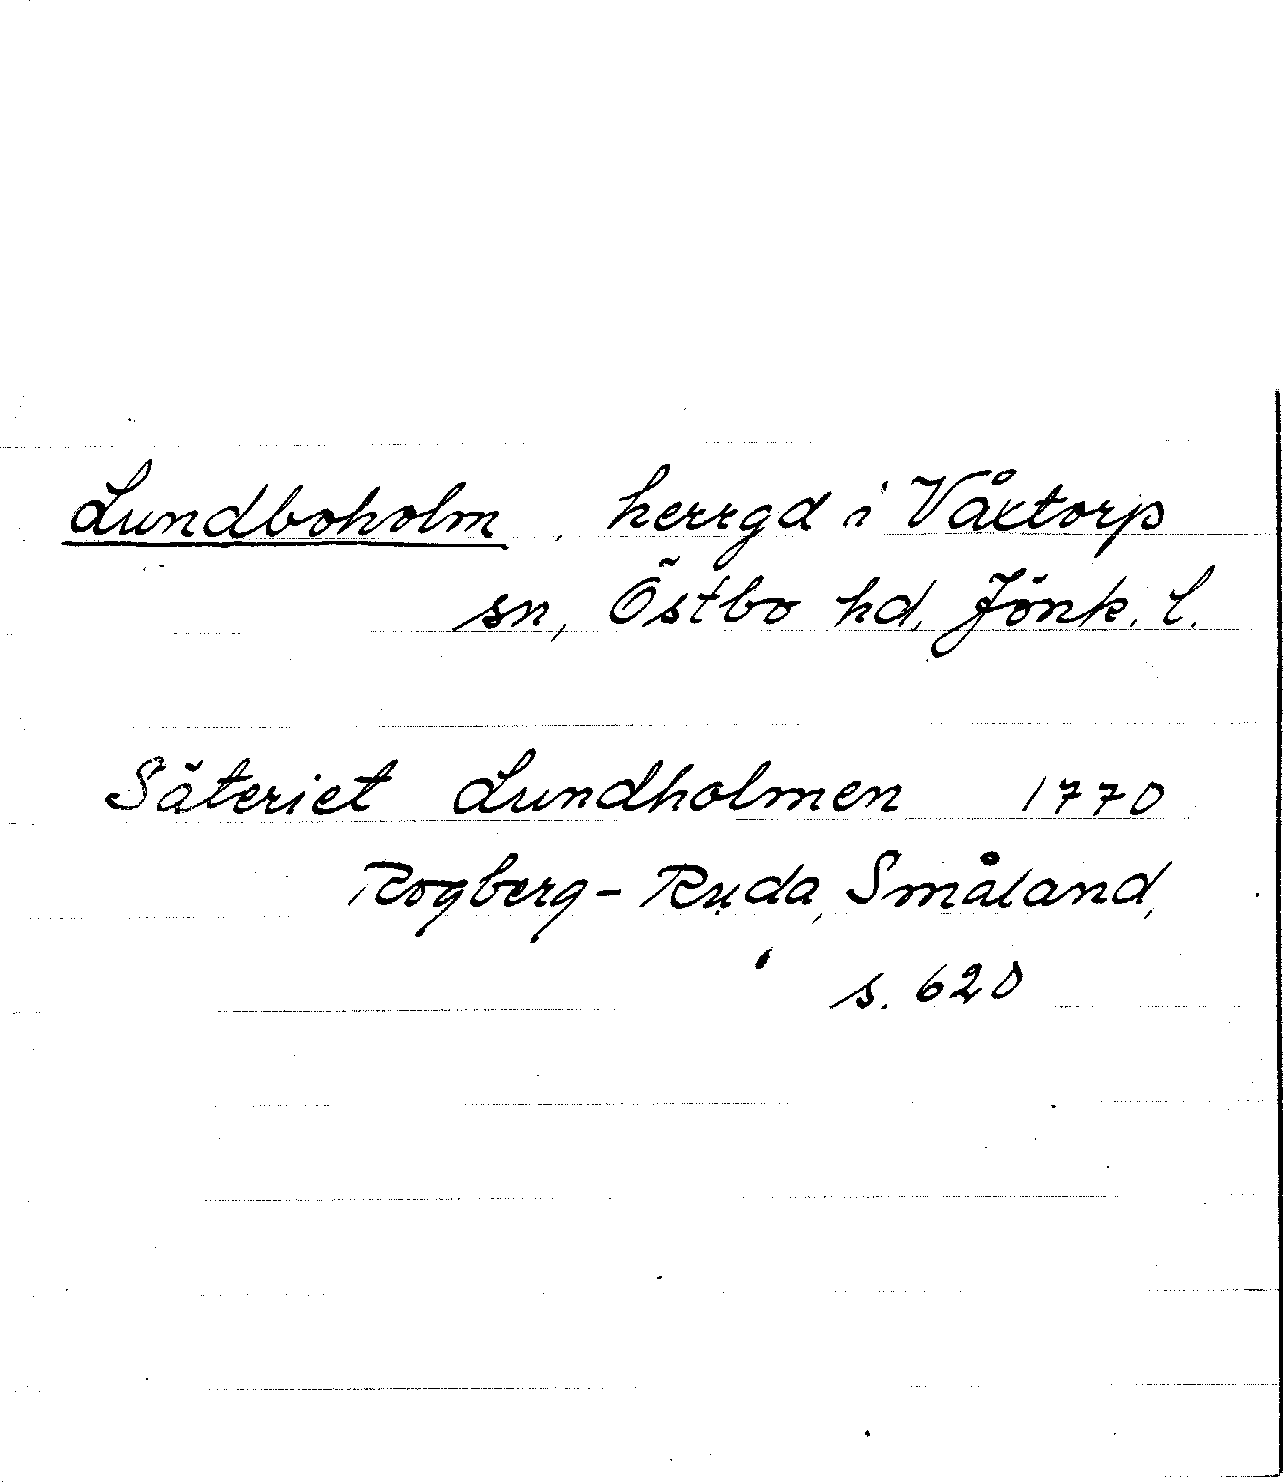 Lundboholm, herrgd i Våxtorp
sn, Östbo hd, Jönk. l.
Säteriet Lundholmen 1770
Rogberg-Ruda, Småland,
s. 620